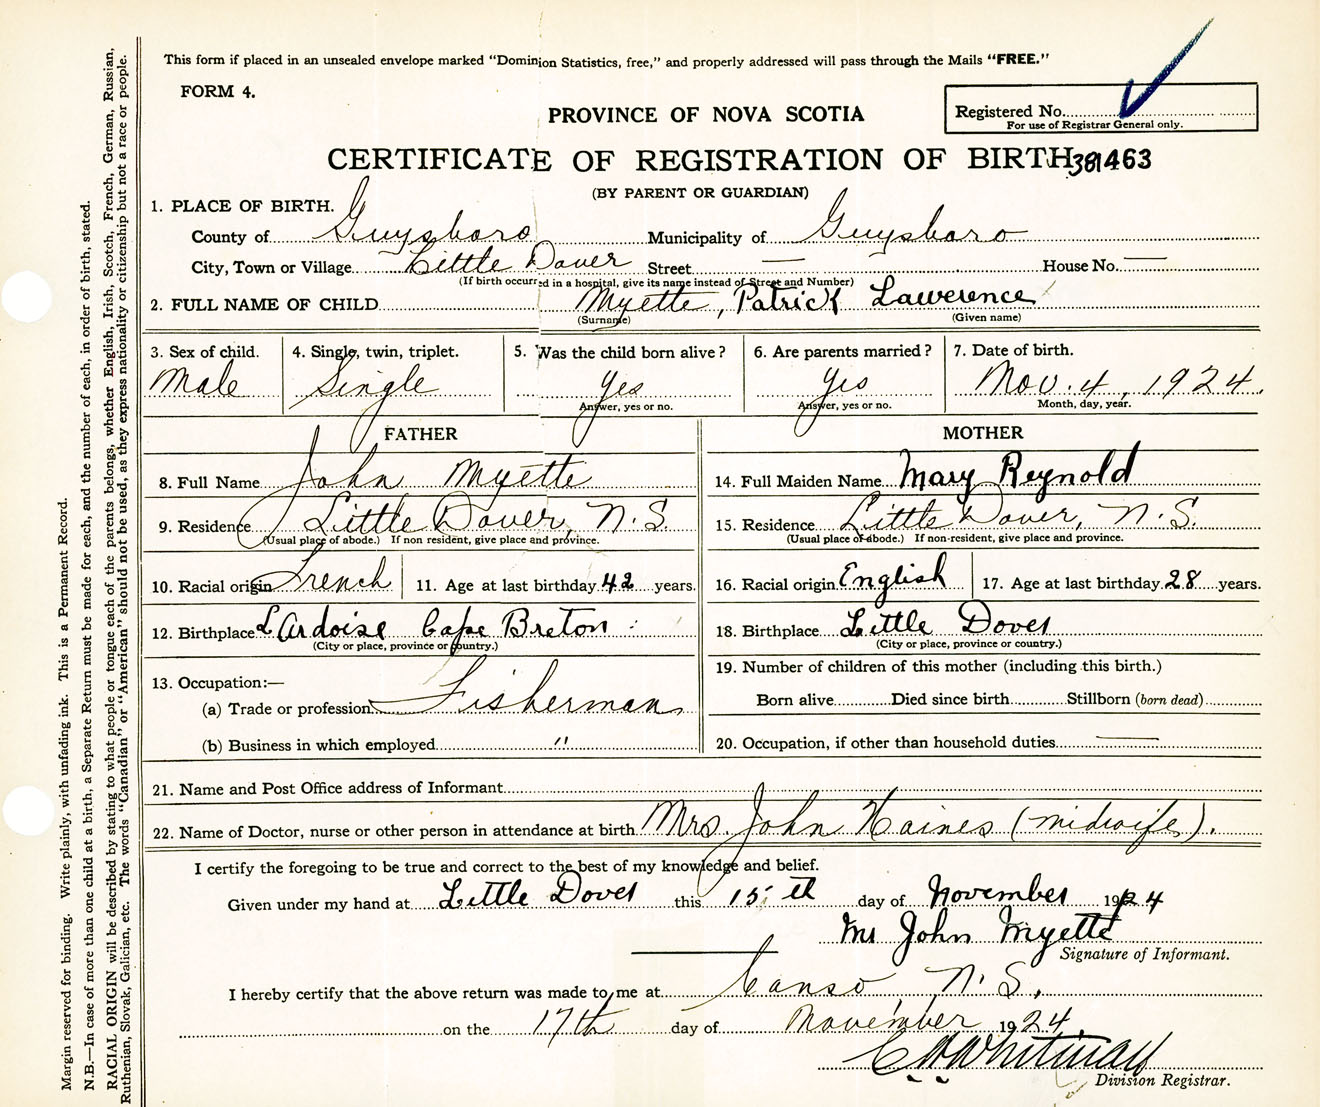 This form if placed in an unsealed envelope marked "Dominion Statistics, free," and properly addressed will pass through the Mails "FREE."
FORM 4.
PROVINCE OF NOVA SCOTIA
Registered No.
For use of Registrar General only.
CERTIFICATE OF REGISTRATION OF BIRTH 381463
(BY PARENT OR GUARDIAN)
1. PLACE OF BIRTH.
County of Guysboro Municipality of Guysboro
City, Town or Village Little Dover Street — House No. —
(If birth occurred in a hospital, give its name instead of Street and Number)
2. FULL NAME OF CHILD Myette, Patrick Lawerence
(Surname) (Given name)
3. Sex of child. 4. Single, twin, triplet. 5. Was the child born alive? 6. Are parents married? 7. Date of birth.
Male Single Yes Yes Nov. 4, 1924.
Answer, yes or no. Answer, yes or no. Month, day, year.
FATHER MOTHER
8. Full Name John Myette 14. Full Maiden Name Mary Reynold
9. Residence Little Dover, N.S. 15. Residence Little Dover, N.S.
(Usual place of abode.) If non resident, give place and province. (Usual place of abode.) If non-resident, give place and province.
10. Racial origin French 11. Age at last birthday 42 years. 16. Racial origin English 17. Age at last birthday 28 years.
12. Birthplace L'Ardoise Cape Breton 18. Birthplace Little Dover
(City or place, province or country.) (City or place, province or country.)
13. Occupation:— 19. Number of children of this mother (including this birth.)
(a) Trade or profession Fisherman Born alive Died since birth Stillborn (born dead)
(b) Business in which employed " 20. Occupation, if other than household duties —
21. Name and Post Office address of Informant
22. Name of Doctor, nurse or other person in attendance at birth Mrs. John Haines (midwife).
I certify the foregoing to be true and correct to the best of my knowledge and belief.
Given under my hand at Little Dover this 15th day of November 1924
Mr John Myette
Signature of Informant.
I hereby certify that the above return was made to me at Canso, N.S.
on the 17th day of November 1924
C W Whitman
Division Registrar.
Margin reserved for binding. Write plainly, with unfading ink. This is a Permanent Record.
N.B.—In case of more than one child at a birth, a Separate Return must be made for each, and the number of each, in order of birth, stated.
RACIAL ORIGIN will be described by stating to what people or tongue each of the parents belongs, whether English, Irish, Scotch, French, German, Russian,
Ruthenian, Slovak, Galician, etc. The words "Canadian" or "American" should not be used, as they express nationality or citizenship but not a race or people.